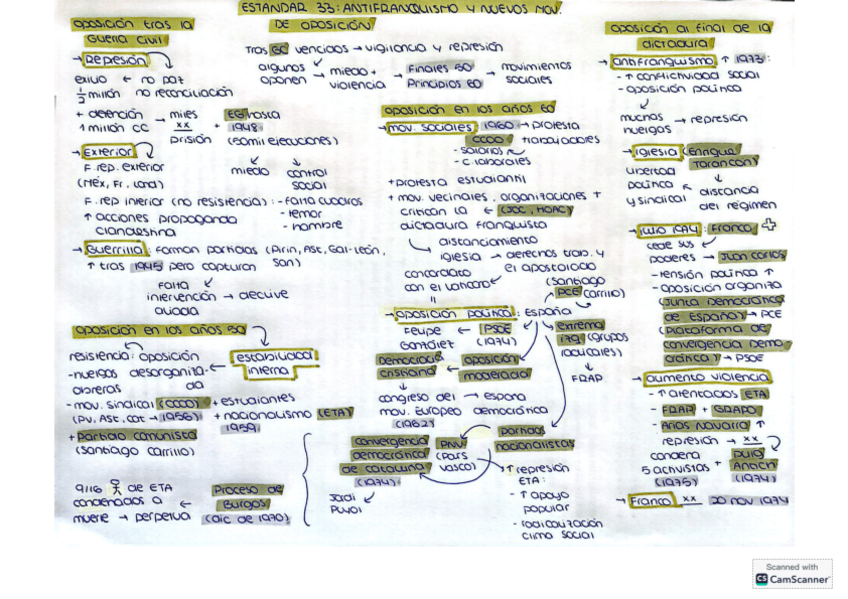 ESTÁNDAR 33: ANTIFRANQUISMO Y NUEVOS MOV.
DE OPOSICIÓN
Tras GC vencidos → vigilancia y represión
algunos oponen → miedo + violencia → Finales 50 Principios 60 → movimientos sociales
oposición tras la
Guerra civil
→ Represión
exilio ← no paz
½ millón no reconciliación
+ detención → miles + EG hasta
1 millón CC xx 1948
prisión (50mil ejecuciones)
miedo control social
→ Exterior
F. rep. exterior
(Méx, Fr, Lond)
F. rep interior (no resistencia): - falta cuadros
- temor
- hambre
↑ acciones propaganda
clandestina
→ Guerrilla: forman partidas (Pirin, Ast, Gal-León,
↑ tras 1945 pero capturan San)
falta
intervención → declive
aliada
oposición en los años 50
resistencia: oposición ← estabilidad
-huelgas desorganiza- interna
obreras da
-mov. sindical (CCOO) + estudiantes
(PV, Ast, Cat → 1956) + nacionalismo (ETA)
+ Partido comunista 1959
(Santiago Carrillo)
9/16 de ETA Proceso de
condenados a ← Burgos
muerte → perpetua (dic de 1970)
oposición en los años 60
→ mov. sociales 1960 → protesta
CCOO trabajadores
- salarios
- c. laborales
+ protesta estudiantil
+ mov. vecinales, organizaciones +
critican la ← (JOC, HOAC)
dictadura franquista
distanciamiento
iglesia → derechos trab. y
el apostolado
concordato
con el Vaticano
(Santiago
PCE Carrillo)
→ oposición política: España
Felipe ← PSOE
González (1974)
extrema
izq (grupos
radicales)
FRAP
Democracia ← oposición
cristiana moderada
congreso del → España
mov. Europeo democrática
(1962)
partidos
nacionalistas
convergencia PNV
democrática (País
de Cataluña vasco)
(1974)
Jordi
Pujol
↑ represión
ETA:
- ↑ apoyo
popular
- radicalización
clima social
oposición al final de la
dictadura
→ antifranquismo ↑ 1973:
- ↑ conflictividad social
- oposición política
muchas → represión
huelgas
→ Iglesia (Enrique
Tarancón)
libertad
política distancia
y sindical del régimen
→ julio 1974: Franco
cede sus
poderes → Juan Carlos
- tensión política ↑
- oposición organiza
(Junta Democrática
de España) → PCE
(Plataforma de
convergencia Demo
crática) → PSOE
→ aumento violencia
- ↑ atentados ETA
- FRAP + GRAPO
- Años Navarro ↑
represión → xx
condena + Puig
5 activistas Antich
(1975) (1974)
→ Franco xx 20 nov 1974
Scanned with
CS CamScanner